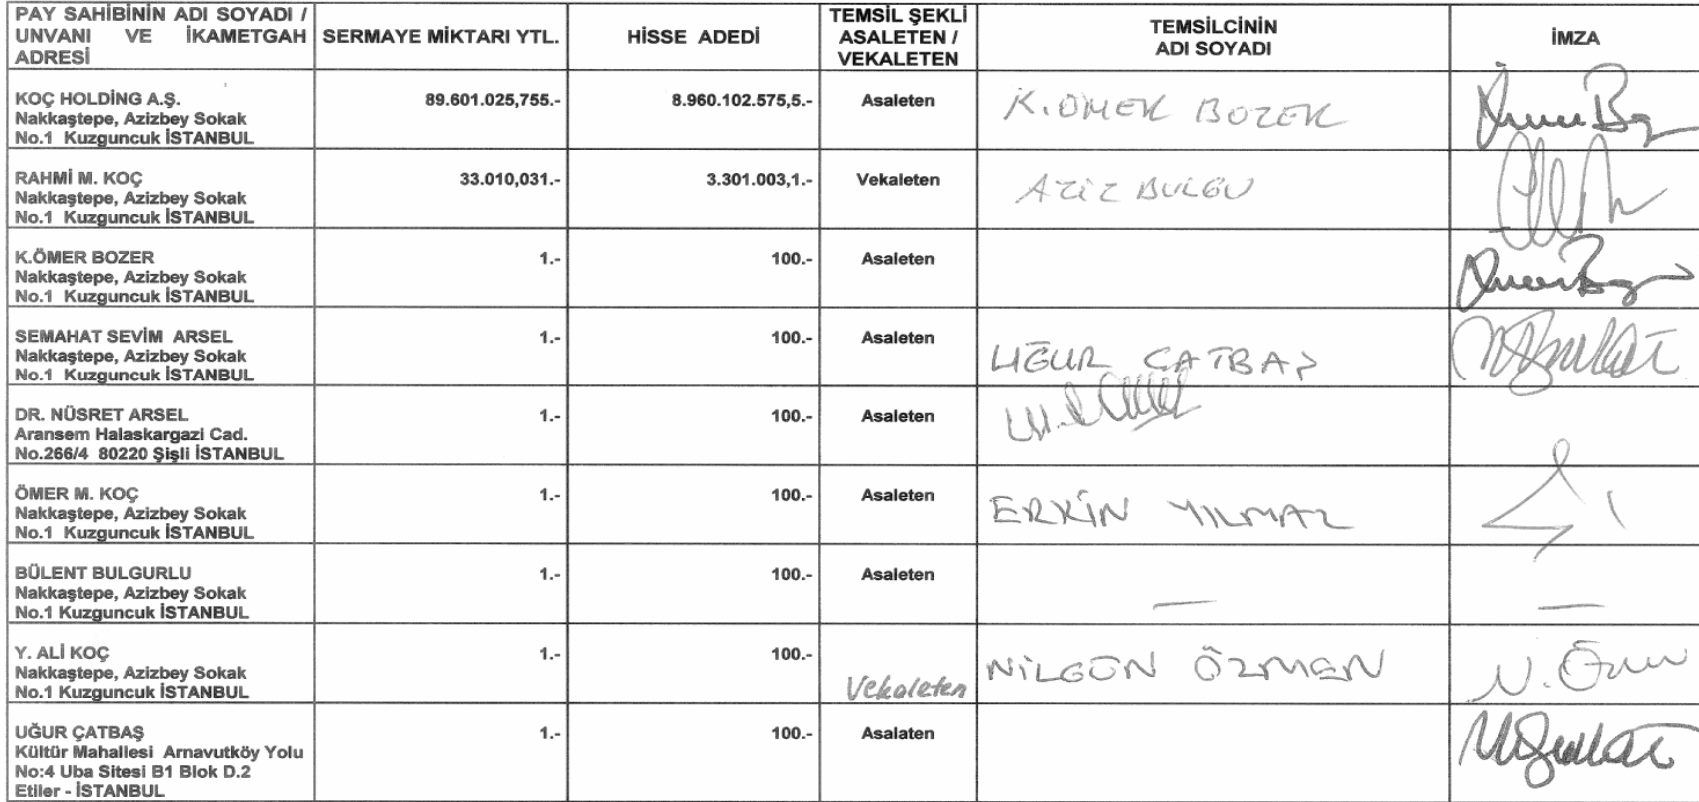 PAY SAHİBİNİN ADI SOYADI /
UNVANI VE İKAMETGAH
ADRESİ
SERMAYE MİKTARI YTL.
HİSSE ADEDİ
TEMSİL ŞEKLİ
ASALETEN /
VEKALETEN
TEMSİLCİNİN
ADI SOYADI
İMZA
KOÇ HOLDİNG A.Ş.
Nakkaştepe, Azizbey Sokak
No.1 Kuzguncuk İSTANBUL
89.601.025,755.-
8.960.102.575,5.-
Asaleten
K. ÖMER BOZER
RAHMİ M. KOÇ
Nakkaştepe, Azizbey Sokak
No.1 Kuzguncuk İSTANBUL
33.010,031.-
3.301.003,1.-
Vekaleten
AZİZ BULGU
K.ÖMER BOZER
Nakkaştepe, Azizbey Sokak
No.1 Kuzguncuk İSTANBUL
1.-
100.-
Asaleten
SEMAHAT SEVİM ARSEL
Nakkaştepe, Azizbey Sokak
No.1 Kuzguncuk İSTANBUL
1.-
100.-
Asaleten
UĞUR ÇATBAŞ
DR. NÜSRET ARSEL
Aransem Halaskargazi Cad.
No.266/4 80220 Şişli İSTANBUL
1.-
100.-
Asaleten
ÖMER M. KOÇ
Nakkaştepe, Azizbey Sokak
No.1 Kuzguncuk İSTANBUL
1.-
100.-
Asaleten
ERKİN YILMAZ
BÜLENT BULGURLU
Nakkaştepe, Azizbey Sokak
No.1 Kuzguncuk İSTANBUL
1.-
100.-
Asaleten
—
—
Y. ALİ KOÇ
Nakkaştepe, Azizbey Sokak
No.1 Kuzguncuk İSTANBUL
1.-
100.-
Vekaleten
NİLGÜN ÖZMEN
UĞUR ÇATBAŞ
Kültür Mahallesi Arnavutköy Yolu
No:4 Uba Sitesi B1 Blok D.2
Etiler - İSTANBUL
1.-
100.-
Asalaten